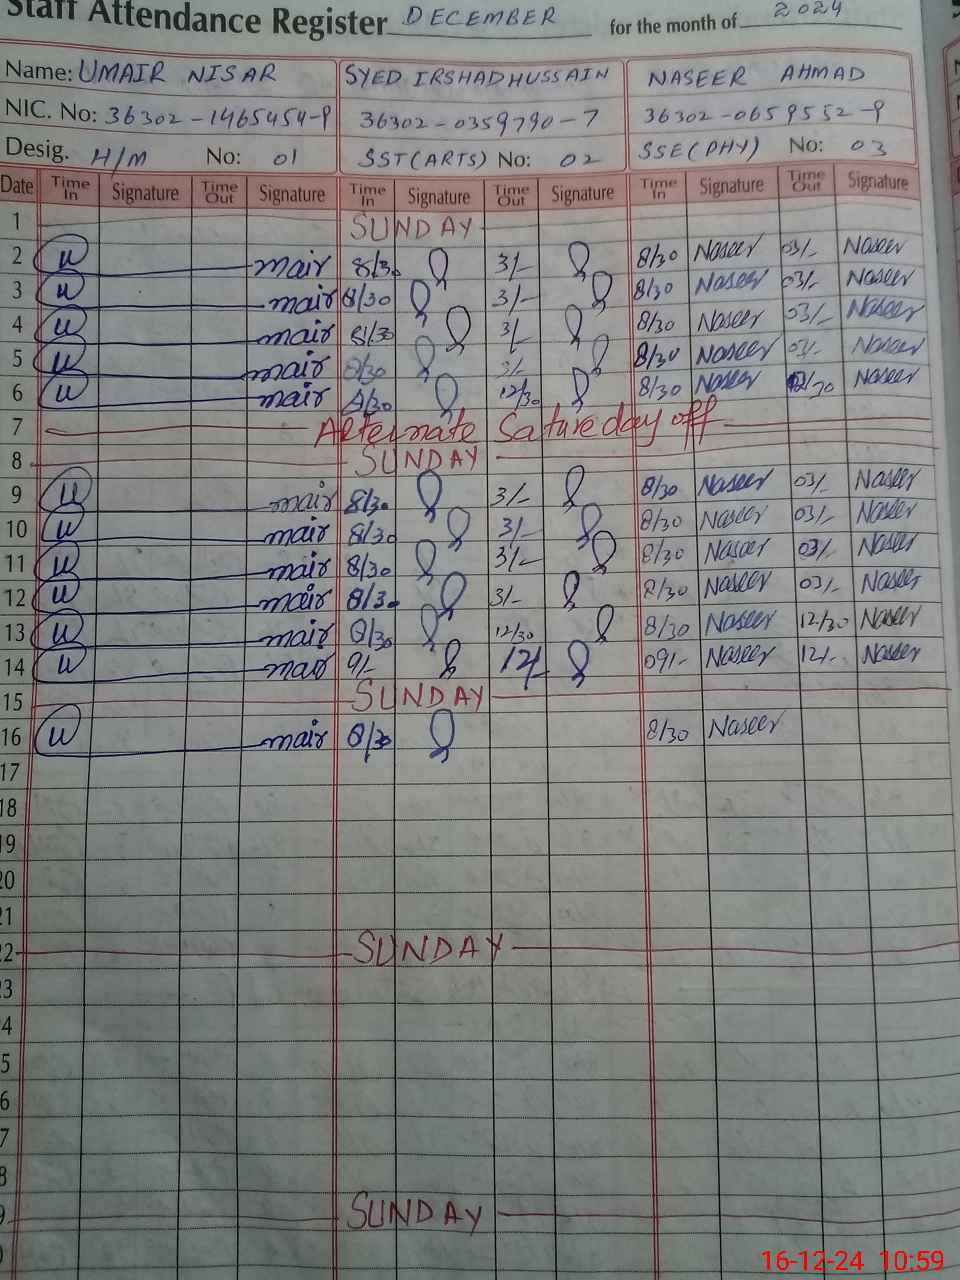 Staff Attendance Register DECEMBER for the month of 2024
Name: UMAIR NISAR SYED IRSHAD HUSSAIN NASEER AHMAD
NIC. No: 36302-1465454-9 36302-0359790-7 36302-0659552-9
Desig. H/M No: 01 SST(ARTS) No: 02 SSE(PHY) No: 03
Date Time In Signature Time Out Signature Time In Signature Time Out Signature Time In Signature Time Out Signature
1 SUNDAY
2 U mair 8/30 3/- 8/30 Naseer 03/- Naseer
3 U mair 8/30 3/- 8/30 Naseer 03/- Naseer
4 U mair 8/30 3/- 8/30 Naseer 03/- Naseer
5 U mair 8/30 3/- 8/30 Naseer 03/- Naseer
6 U mair 8/30 12/30 8/30 Naseer 12/30 Naseer
7 Alternate Satureday off
8 SUNDAY
9 U mair 8/30 3/- 8/30 Naseer 03/- Naseer
10 U mair 8/30 3/- 8/30 Naseer 03/- Naseer
11 U mair 8/30 3/- 8/30 Naseer 03/- Naseer
12 U mair 8/30 3/- 8/30 Naseer 03/- Naseer
13 U mair 8/30 12/30 8/30 Naseer 12/30 Naseer
14 U mair 9/- 12/- 09/- Naseer 12/- Naseer
15 SUNDAY
16 U mair 8/30 8/30 Naseer
17
18
19
20
21
22 SUNDAY
3
4
5
6
7
8
9 SUNDAY
0
16-12-24 10:59